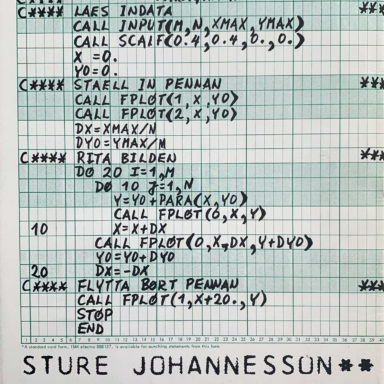 C**** LAES INDATA ***
CALL INPUT(M,N,XMAX,YMAX)
CALL SCALF(0.4,0.4,0.,0.)
X =0.
Y0=0.
C**** STAELL IN PENNAN ***
CALL FPLØT(1,X,Y0)
CALL FPLØT(2,X,Y0)
DX=XMAX/N
DY0=YMAX/M
C**** RITA BILDEN ***
DØ 20 I=1,M
DØ 10 J=1,N
Y=Y0+PARA(X,Y0)
CALL FPLØT(0,X,Y)
10 X=X+DX
CALL FPLØT(0,X-DX,Y+DY0)
Y0=Y0+DY0
20 DX=-DX
C**** FLYTTA BØRT PENNAN ***
CALL FPLØT(1,X+20.,Y)
STØP
END
STURE JOHANNESSON**